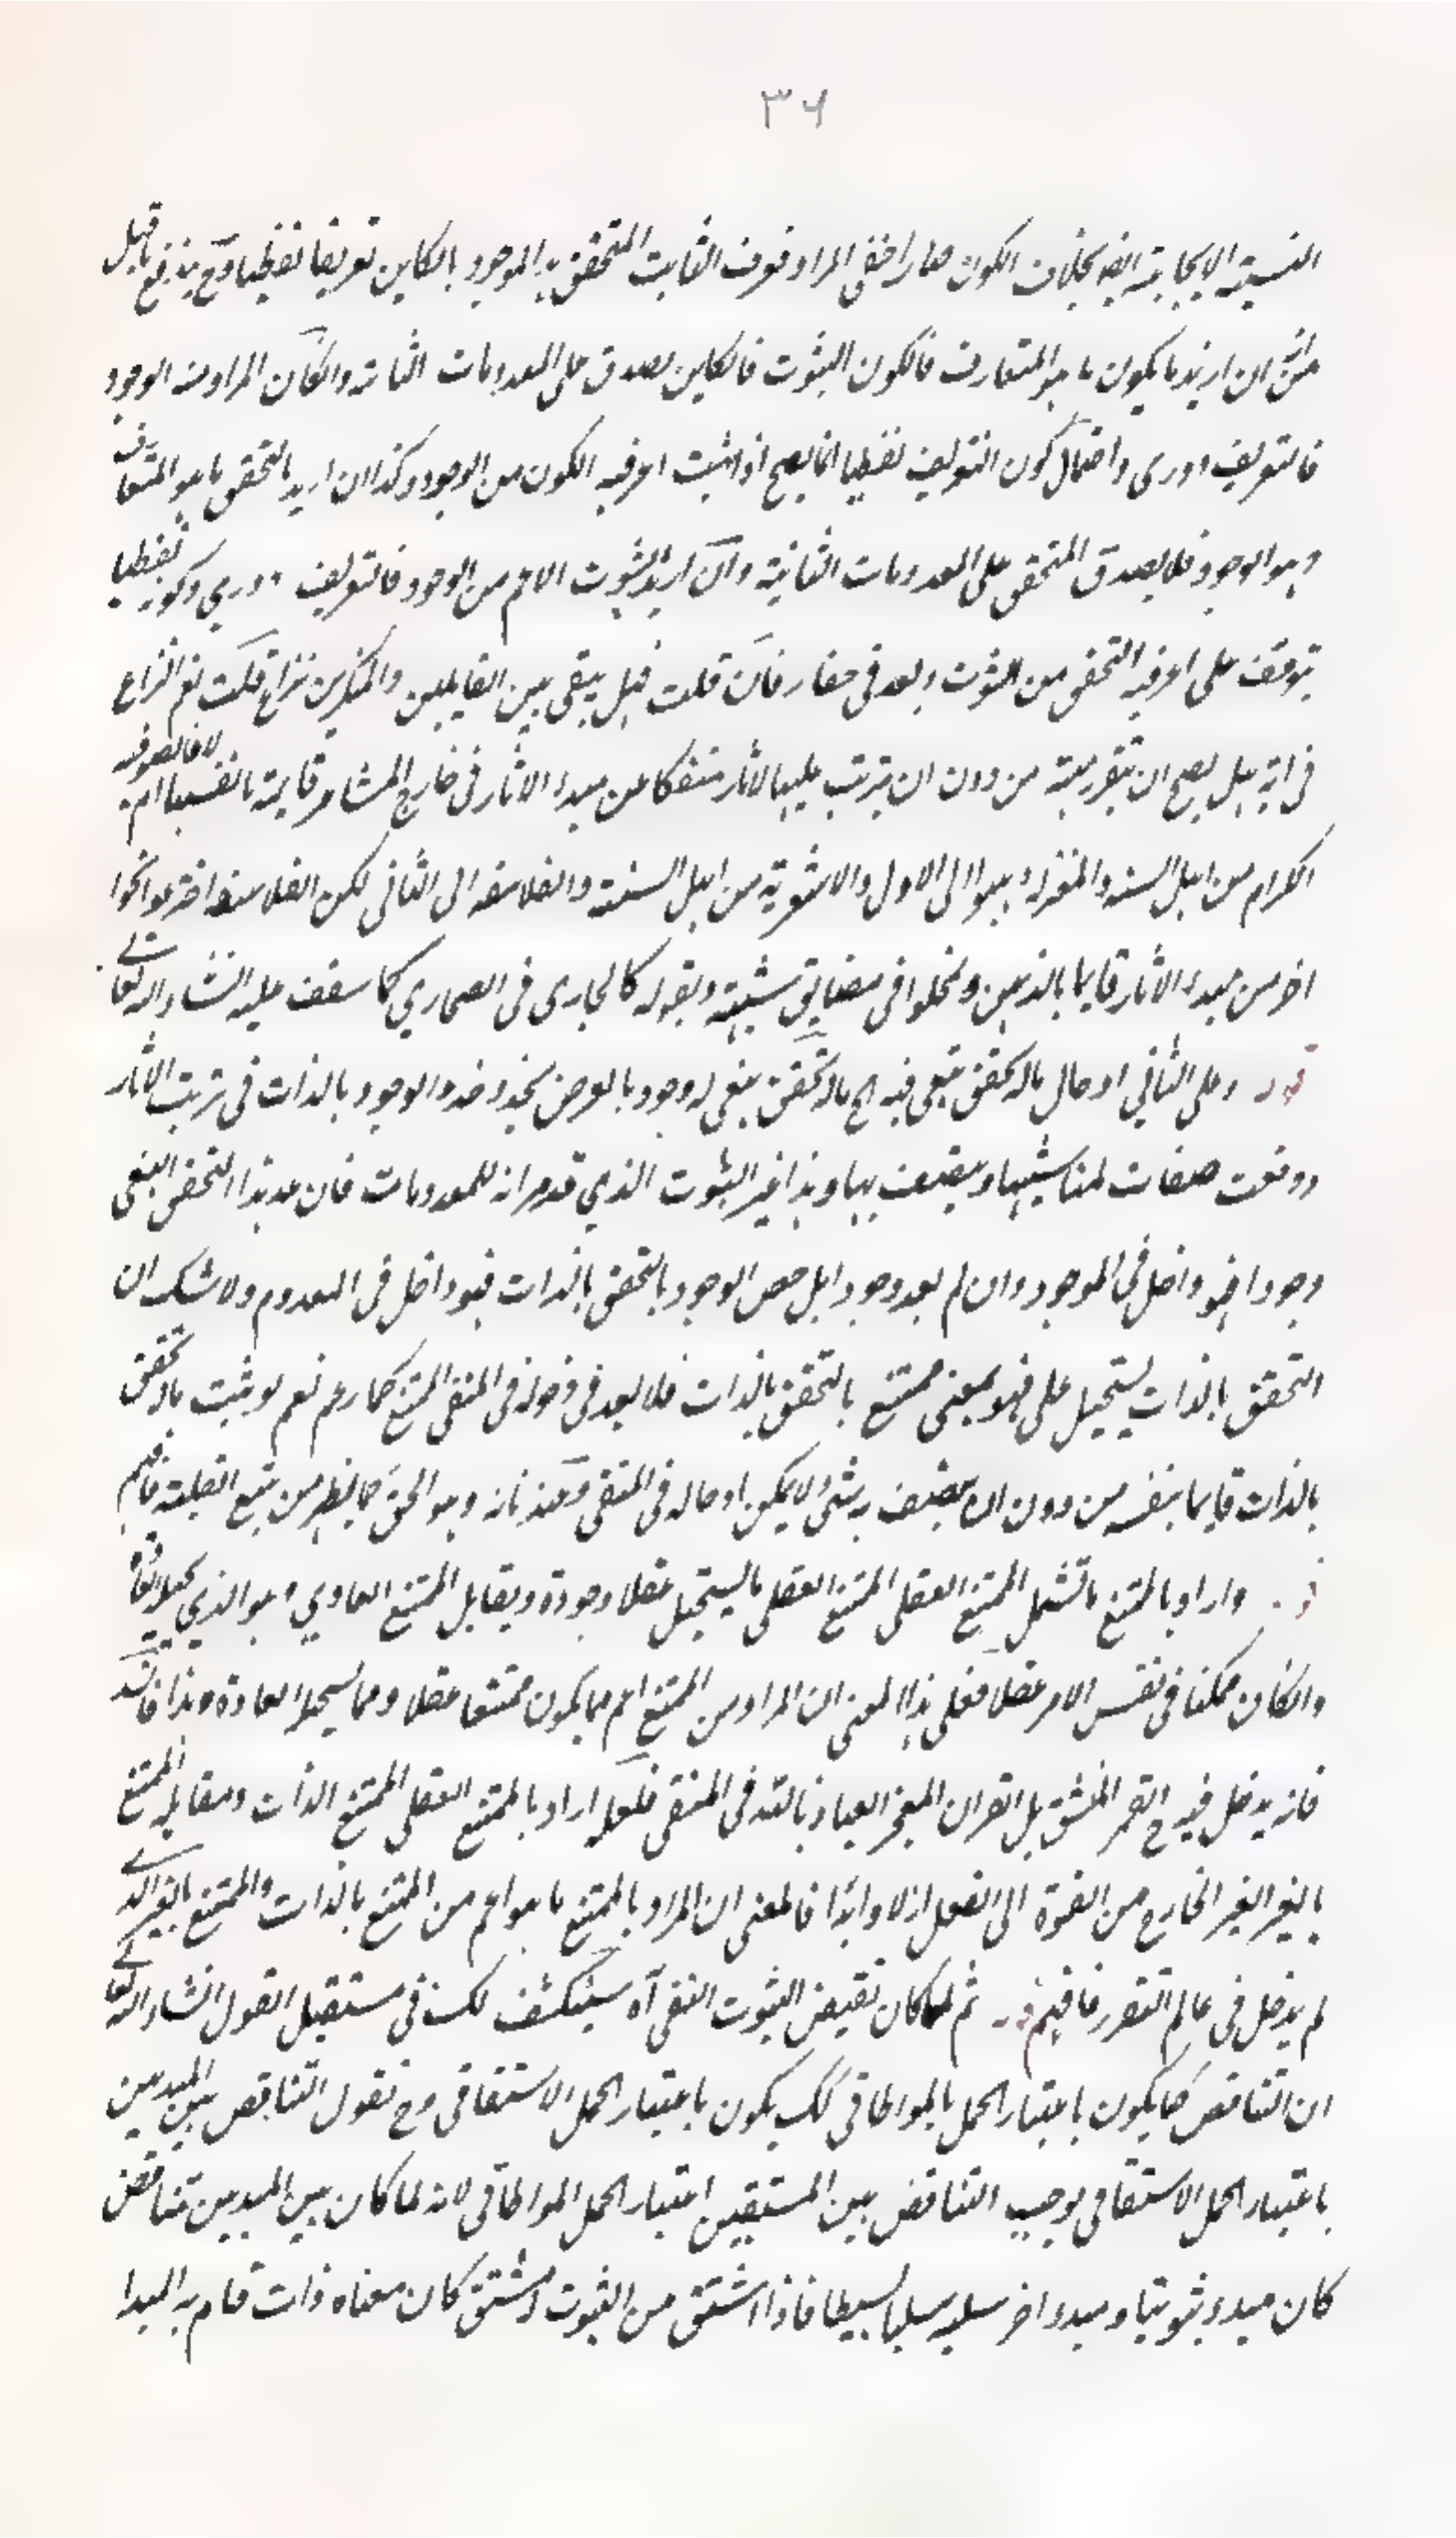 ٣٦
النسبة الايجابية ايضا بخلاف الكون صار اخفى المراد فعرف الثابت المتحقق به الموجود بالكاين تعريفا لفظيا وح يندفع ما قيل
من انه ان اريد ما يكون ما هو المتعارف فالكون الثبوت فالكاين يصدق على المعدومات الثابتة وان كان المراد منه الوجود
فالتعريف دورى واحتمال كون التعريف لفظيا انما يصح اذا اثبت اعرفية الكون من الوجود وكذا ان اريد بالتحقق ما هو المتعارف
وهو الوجود فلا يصدق المتحقق على المعدومات الثابتة وان اريد الثبوت الاعم من الوجود فالتعريف دوري وكونه لفظيا
يتوقف على اعرفية التحقق من الثبوت وبعد فى خفاء فان قلت فهل يبقى بين القايلين والمنكرين نزاع قلت نعم النزاع
فى انه هل يصح ان يتقرر مهية من دون ان يترتب عليها الاثار منفكا عن مبدء الاثار فى خارج المشاعر قايمة بانفسها ام لا فالصوفية
الكرام من اهل السنة والمعتزلة ذهبوا الى الاول والاشعرية من اهل السنة والفلاسفة الى الثانى لكن الفلاسفة اخترعوا نحوا
اخر من مبدء الاثار قايما بالذهن ودخلوا فى مضايق شبهة وبقوا كالحبارى فى الصحاري كما ستقف عليه انشاء الله تعالى
قوله وعلى الثاني ادخال ماله تحقق تبعى فيه اى ماله تحقق تبعى له وجود بالعرض يحذو حذو الموجود بالذات فى ترتب الاثار
ووقعت صفات لمناشيها ويتصف بها وهذا غير الثبوت الذي قد مر انه للمعدومات فان عد هذا التحقق التبعى
وجودا فهو داخل فى الموجود وان لم يعد وجودا بل خص الوجود بالتحقق بالذات فهو داخل فى المعدوم ولا شك ان
التحقق بالذات يستحيل على فهو بمعنى ممتنع بالتحقق بالذات فلا بعد فى دخوله فى المنفى الممتنع كما زعم نعم لو يثبت ماله تحقق
بالذات قايما بنفسه من دون ان يتصف به شئ لا يمكن ادخاله فى المنفى وهو الحق كما يظهر من تتبع فافهم
قوله واراد بالممتنع ما يشمل الممتنع العقلى الممتنع العقلى ما يستحيل عقلا وجوده ويقابل الممتنع العادي وهو الذي
وان كان ممكنا فى نفس الامر عقلا فعلى هذا المعنى ان المراد من الممتنع اعم مما يكون ممتنعا عقلا ومما يستحيله العادة وهذا فاسد
فانه يدخل فيه ح القمر المنشق بل القران المعجز العياذ بالله فى المنفى فلعله اراد بالممتنع العقلى الممتنع الذات ومقابله الممتنع
بالغير الغير الخارج من القوة الى الفعل ازلا وابدا فالمعنى ان المراد بالممتنع ما هو اعم من الممتنع بالذات والممتنع بالغير الذي
لم يدخل فى عالم التقرر فافهم قوله ثم لما كان نقيض الثبوت النفى آه سينكشف لك فى مستقبل القول انشاء الله تعالى
ان التناقض كما يكون باعتبار الحمل بالمواطاتى كك يكون باعتبار الحمل الاشتقاقى وح نقول التناقض بين المبدءين
باعتبار الحمل الاشتقاقى يوجب التناقض بين المشتقين باعتبار الحمل المواطاتى لانه لما كان بين المبدءين تناقض
كان مبدء ثبوتيا ومبدء اخر سلبه سلبا بسيطا فاذا اشتق من الثبوت المشتق كان معناه ذات قام به المبدا